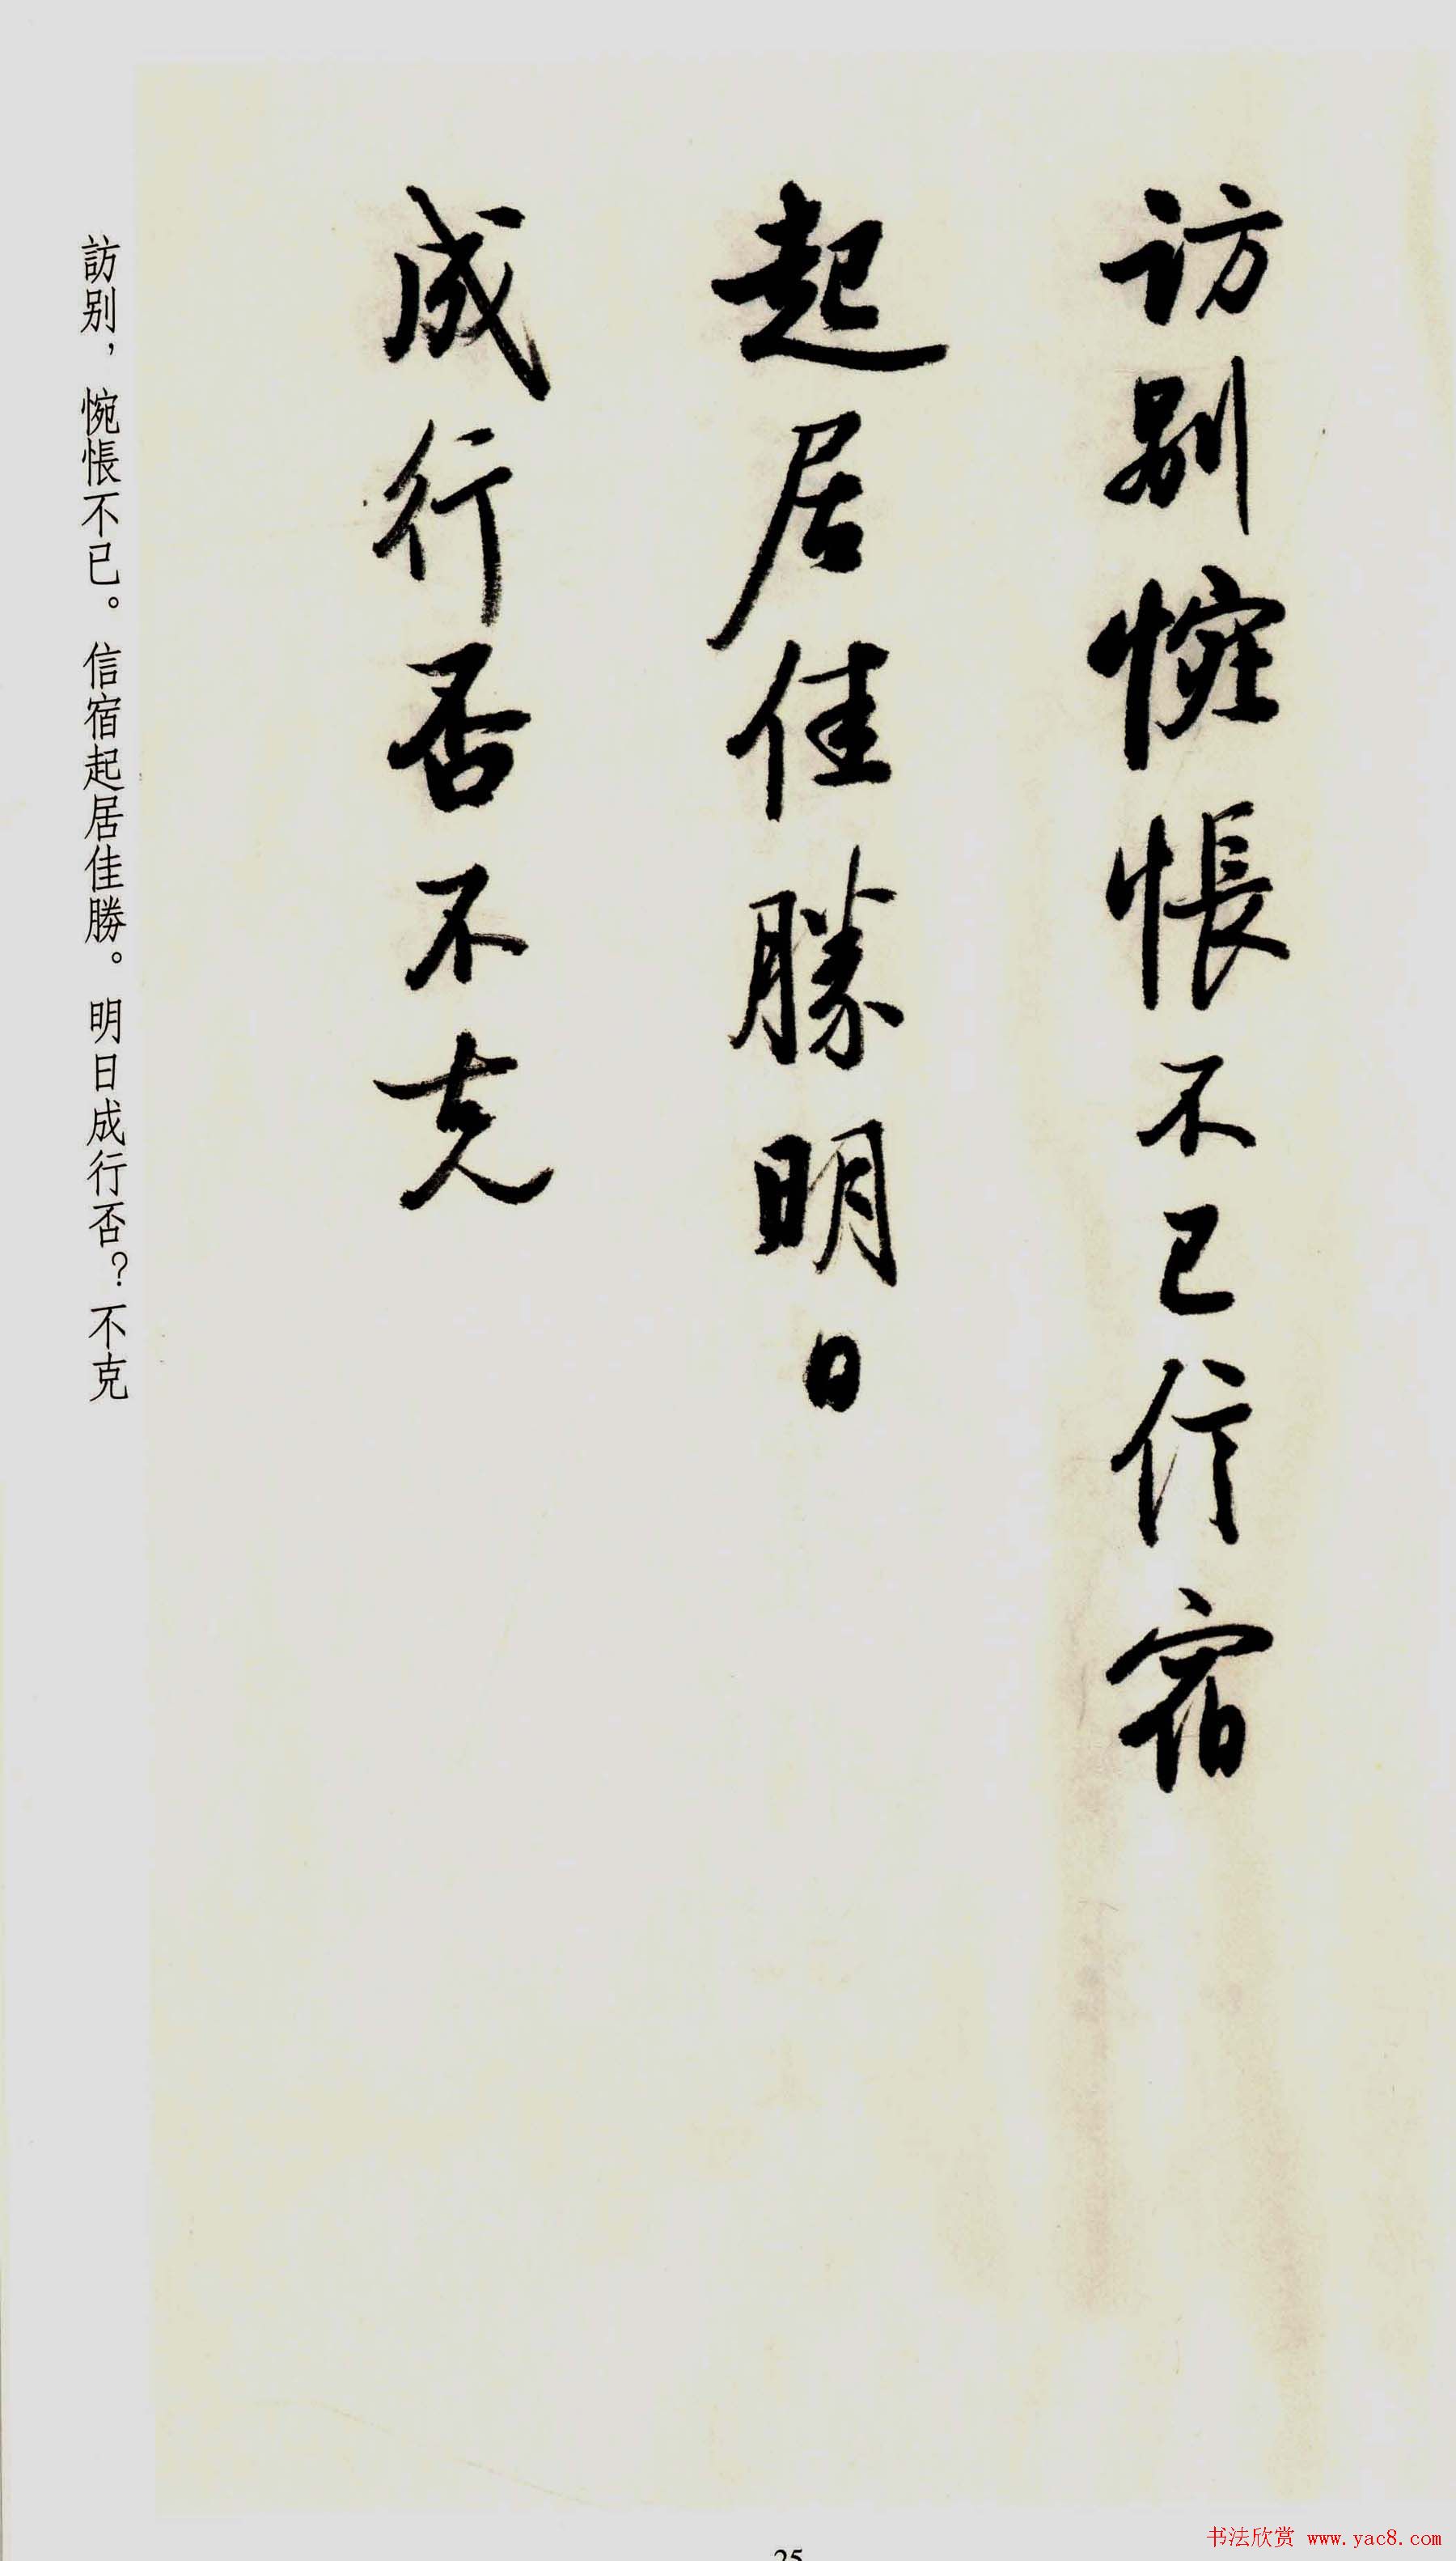 訪别惋悵不已信宿
起居佳勝明日
成行否不克
訪别，惋悵不已。信宿起居佳勝。明日成行否？不克
25
书法欣赏 www.yac8.com